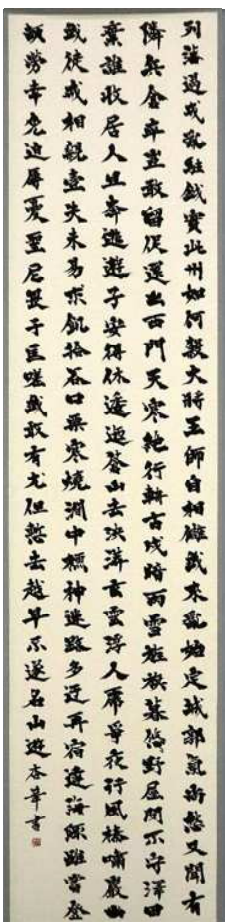 列藩遏戎亂駐鉞實此州如何殺大將王師自相讎我來亂始定城郭氣尚愁又聞有
鄰兵倉卒豈敢留促還出西門天寒絕行輈古戍暗雨雪旌旗暮悠野屋閉不守澤田
棄誰收居人且奔逃遊子安得休逶迤登山去泱漭玄雲浮人虎爭夜行風榛嘯巖幽
我徒戒相親壹失未易求飢拾谷口栗寒燒澗中槱神迷路多迂再宿達海陬雖當登
頓勞幸免迫辱憂聖尼畏于匡嗟我敢有尤但慙去越早不遂名山遊 杏華書